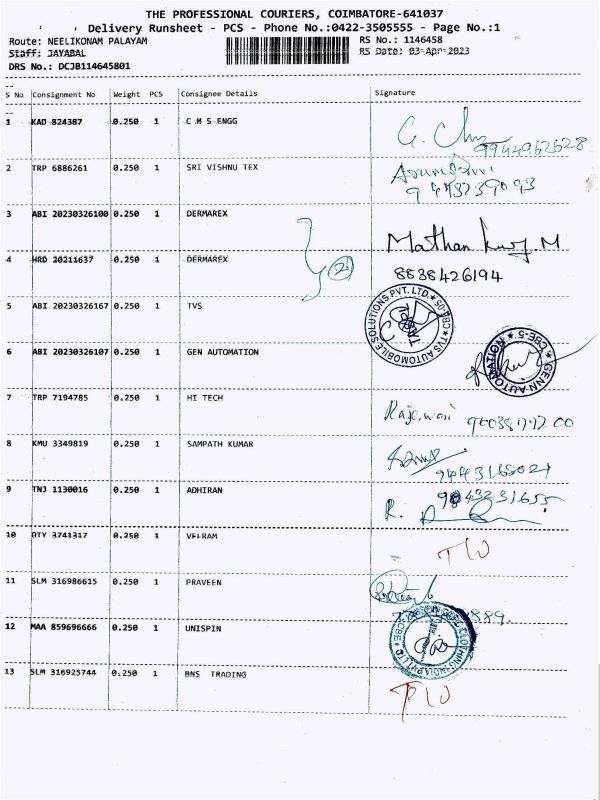 THE PROFESSIONAL COURIERS, COIMBATORE-641037
Delivery Runsheet - PCS - Phone No.:0422-3505555 - Page No.:1
Route: NEELIKONAM PALAYAM RS No.: 1146458
Staff: JAYABAL RS Date: 03-Apr-2023
DRS No.: DCJB114645801
S No Consignment No Weight PCS Consignee Details Signature
1 KAD 824387 0.250 1 C M S ENGG
9944962628
2 TRP 6886261 0.250 1 SRI VISHNU TEX
3 ABI 20230326100 0.250 1 DERMAREX
Mathan Kumar M
4 HRD 20211637 0.250 1 DERMAREX 2
8838426194
5 ABI 20230326167 0.250 1 TVS
TVS AUTOMOBILE SOLUTIONS PVT. LTD.
6 ABI 20230326107 0.250 1 GEN AUTOMATION
GENN AUTOMATION CBE-5
7 TRP 7194785 0.250 1 HI TECH
8 KMU 3349819 0.250 1 SAMPATH KUMAR
9 TNJ 1130016 0.250 1 ADHIRAN
R.
10 OTY 3741317 0.250 1 VELRAM
11 SLM 316986615 0.250 1 PRAVEEN
12 MAA 859696666 0.250 1 UNISPIN
13 SLM 316925744 0.250 1 BNS TRADING